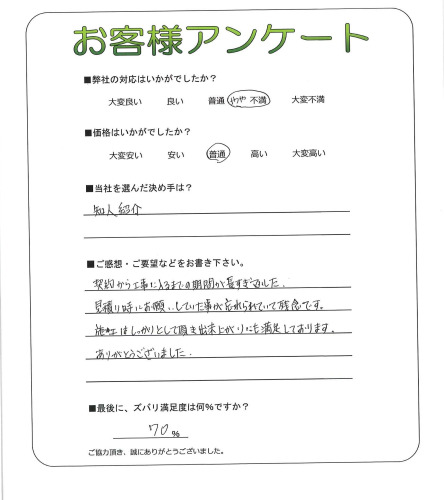 お客様アンケート
■弊社の対応はいかがでしたか?
大変良い 良い 普通 やや 不満 大変不満
■価格はいかがでしたか?
大変安い 安い 普通 高い 大変高い
■当社を選んだ決め手は?
知人紹介
■ご感想・ご要望などをお書き下さい。
契約から工事に入るまでの期間が長すぎました.
見積り時にお願いしていた事が忘れられていて残念です。
施工はしっかりとして頂き出来上がりにも満足しております。
ありがとうございました.
■最後に、ズバリ満足度は何%ですか?
70 %
ご協力頂き、誠にありがとうございました。